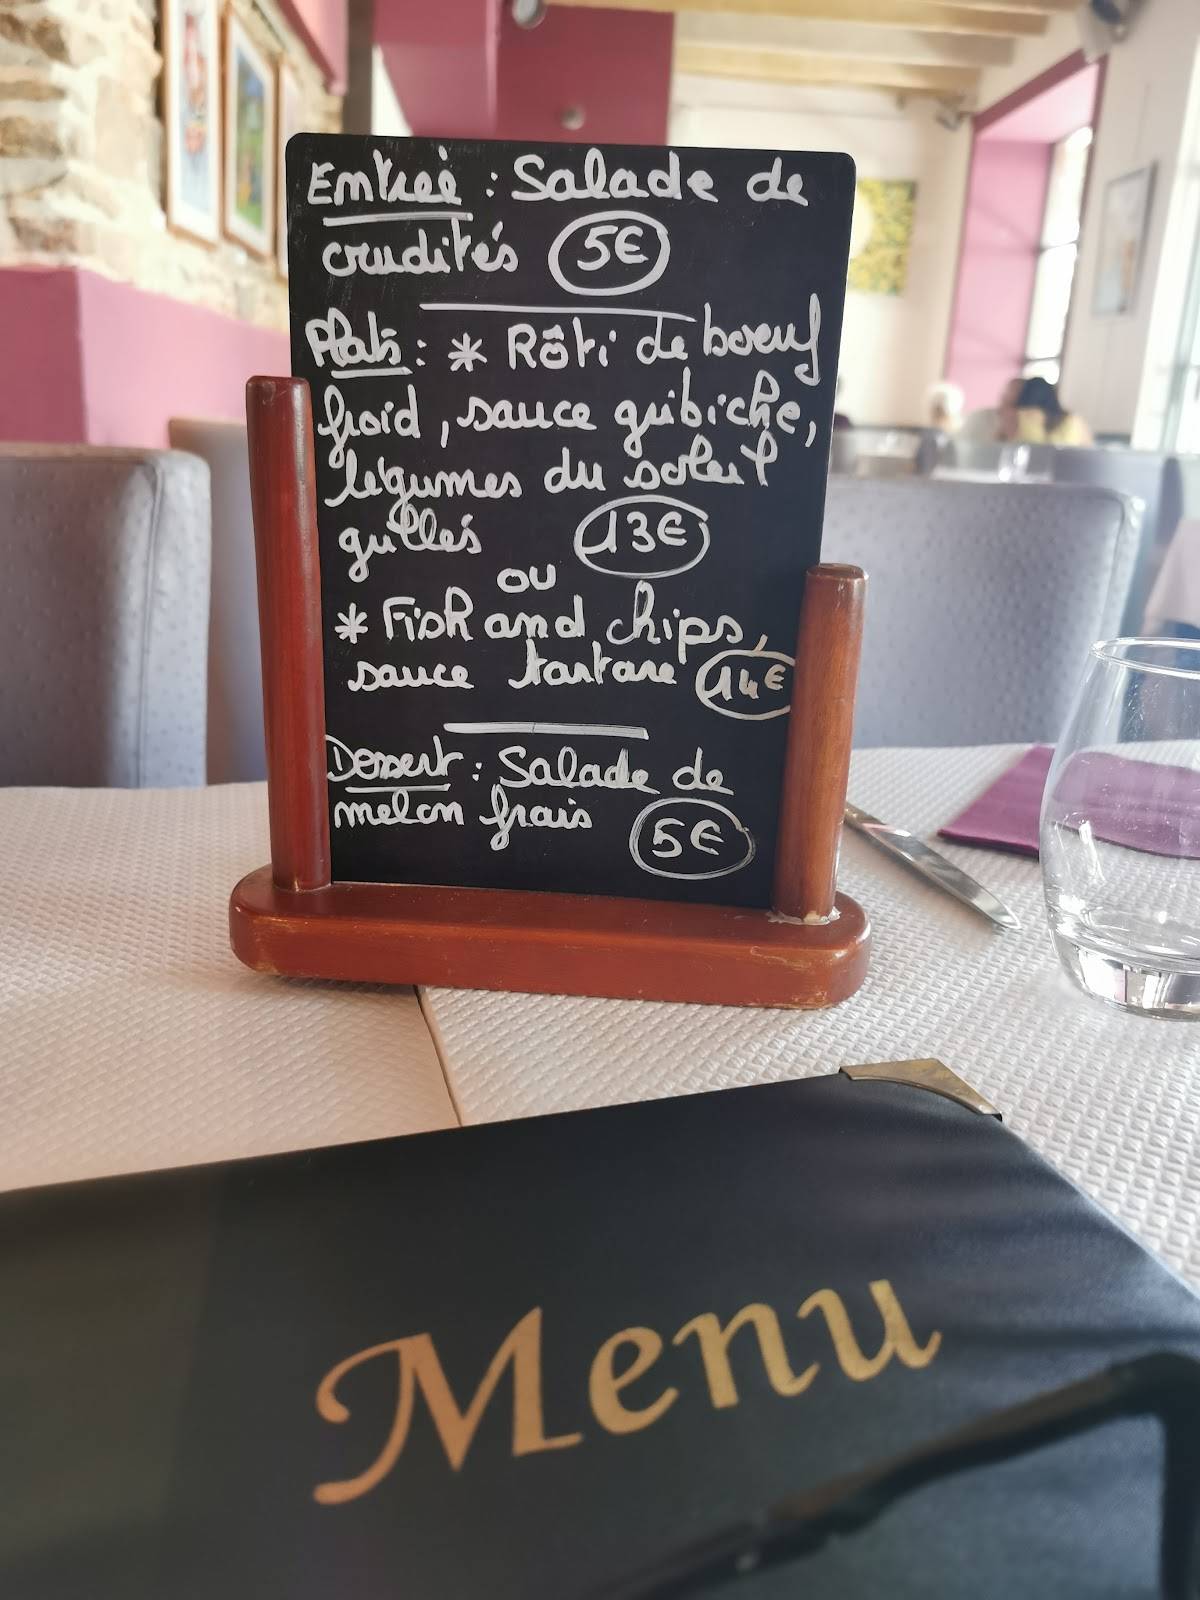 Entrée : Salade de
crudités 5€
Plats : * Rôti de boeuf
froid, sauce gribiche,
légumes du soleil
grillés 13€
ou
* Fish and chips,
sauce tartare 14€
Dessert : Salade de
melon frais 5€
Menu